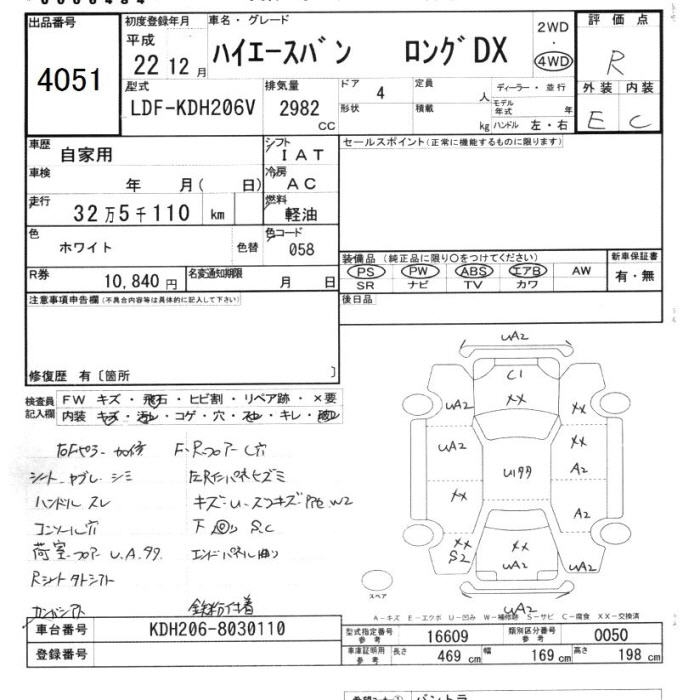 出品番号
4051
初度登録年月
平成
22 12 月
車名 ・ グレード
ハイエースバン ロングDX
2WD
・
4WD
評価点
R
外装 内装
E C
型式
LDF-KDH206V
排気量
2982
cc
ドア
4
形状
定員
人
積載
kg
ディーラー・並行
モデル年式 年
ハンドル 左・右
車歴
自家用
車検
年 月( 日)
走行
32万5千110 km
色
ホワイト 色替
R券
10,840 円
名変通知期限
月 日
シフト
IAT
冷房
AC
燃料
軽油
色コード
058
セールスポイント(正常に機能するものに限ります)
装備品 (純正品に限り○をつけてください)
PS PW ABS エアB AW
SR ナビ TV カワ
新車保証書
有・無
後日品
注意事項申告欄(不具合内容等は具体的に記入して下さい)
修復歴 有〔箇所 〕
検査員記入欄
FW キズ・飛石・ヒビ割・リペア跡・×要
内装 キズ・汚レ・コゲ・穴・スレ・キレ・
シート ヤブレ シミ
ハンドル スレ
コンソール穴
荷室フロアー U.A.99
F・Rフロアー C穴
キズ・U・
S.C
エンドパネル曲り
鉄粉付着
UA2
C1
XX
UA2
XX
UA2
XX
A2
U199
XX
A2
XX
S2
XX
UA2
UA2
UA2
スペア
A-キズ E-エクボ U-凹み W-補修跡 S-サビ C-腐食 XX-交換済
車台番号
KDH206-8030110
登録番号
型式指定番号
参考
16609
類別区分番号
参考
0050
車庫証明用
参考
長さ 469 cm 幅 169 cm 高さ 198 cm